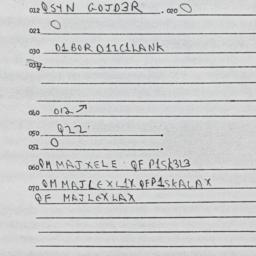 012 QSYN GOJD3R . 020 O
021 O
030 D1BOR D12C1LANK
031
040 012 ↗
050 Q22 .
051 O .
060 QM MAJXELE QF P1SK3L3
070 QM MAJLEXL1X QFP1SKALAX
QF MAJLEXLAX